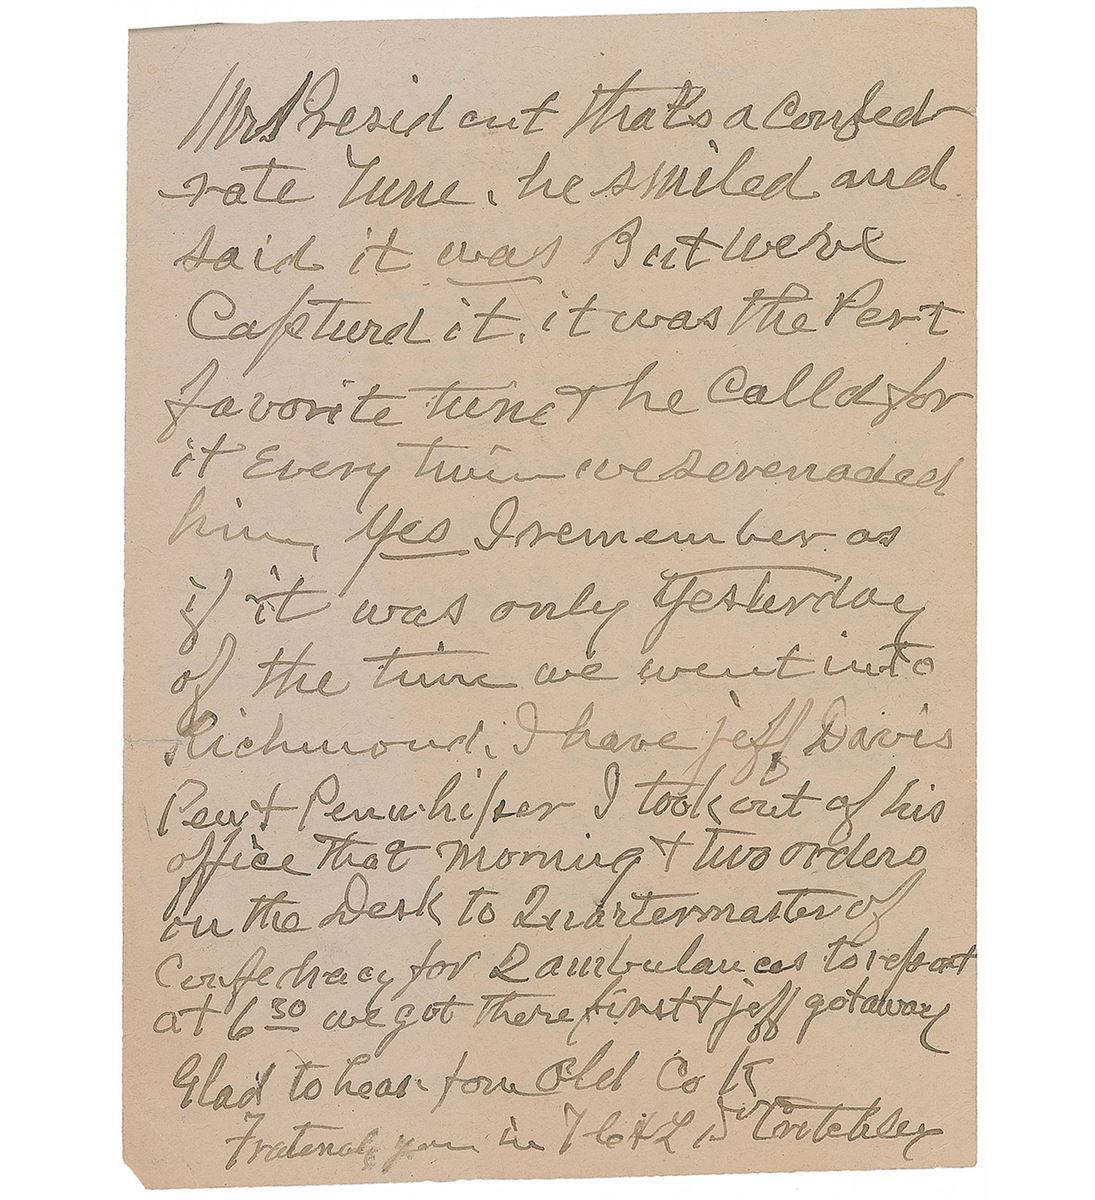 Mr President that's a Confed-
rate Tune. he smiled and
said it was But weve
Capturd it. it was the Pert
favorite tune & he Calld for
it Every time we serenaded
him, Yes I remember as
if it was only Yesterday
of the time we went into
Richmond. I have jeff Davis
Pen & Pennhilser I took out of his
office that morning & two orders
on the Desk to Quartermaster of
Confedracy for 2 ambulances to report
at 6 30 we got there first & jeff got away
Glad to hear fom Old Co K
Fraternaly your in F C & L Critchley